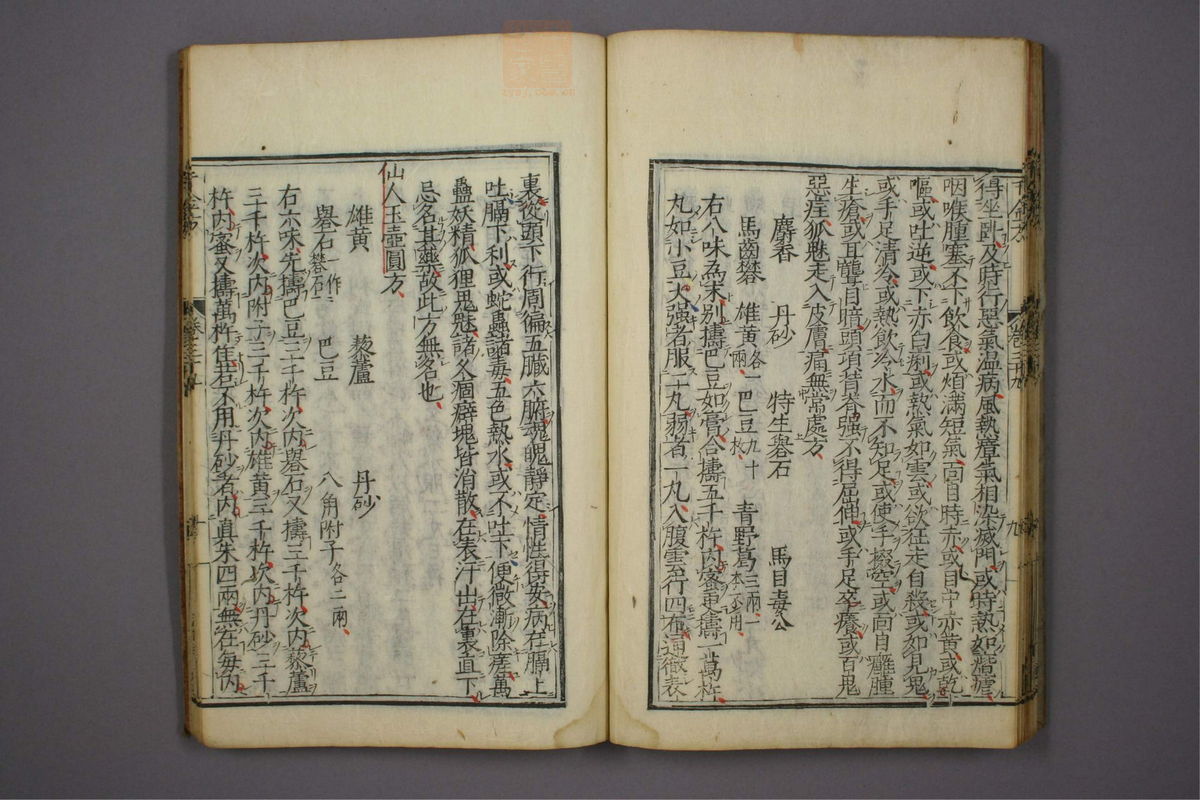 得坐卧及時行惡氣溫病風熱瘴氣相染滅門或時熱如瘧
咽喉腫塞不下飲食或煩滿短氣面目時赤或目中赤黃或乾
嘔或吐逆或下赤白刺或熱氣如雲或欲狂走自殺或如見鬼
或手足清冷或熱飲冷水而不知足或使手掇空或面目
腫生瘡或耳聾目暗頭項背脊強不得屈伸或手足卒癢或百鬼
惡疰狐魅走入皮膚痛無常處方
麝香 丹砂 特生礜石 馬目毒公
馬齒礬 雄黃各一兩 巴豆九十枚 青野葛三兩一本不用
右八味為末別擣巴豆如膏合擣五千杵内蜜更擣一萬杵
丸如小豆大強者服二丸弱者一丸入腹雲行四布通徹表
裏從頭下行周徧五臟六腑魂魄靜定情性得安病在膈上
吐膈下利或蛇蟲諸毒五色熱水或不吐下便微漸除差萬
蠱妖精狐狸鬼魅諸久痼癖塊皆消散在表汗出在裏直下
忌名其藥故此方無名也
仙人玉壺圓方
雄黃 藜蘆 丹砂
礜石一作礬石 巴豆 八角附子各二兩
右六味先擣巴豆三千杵次内礜石又擣三千杵次内藜蘆
三千杵次内附子三千杵次内雄黃三千杵次内丹砂三千
杵内蜜又擣萬杵佳若不用丹砂者内真朱四兩無在每内